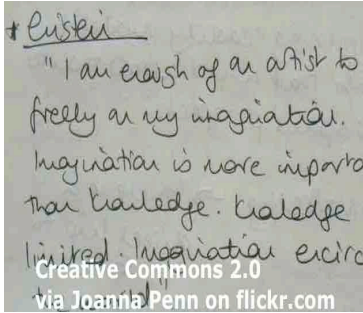 * Einstein
"I am enough of an artist to
freely on my imagination.
Imagination is more importa
than knowledge. Knowledge
limited. Imagination encirc
Creative Commons 2.0
via Joanna Penn on flickr.com